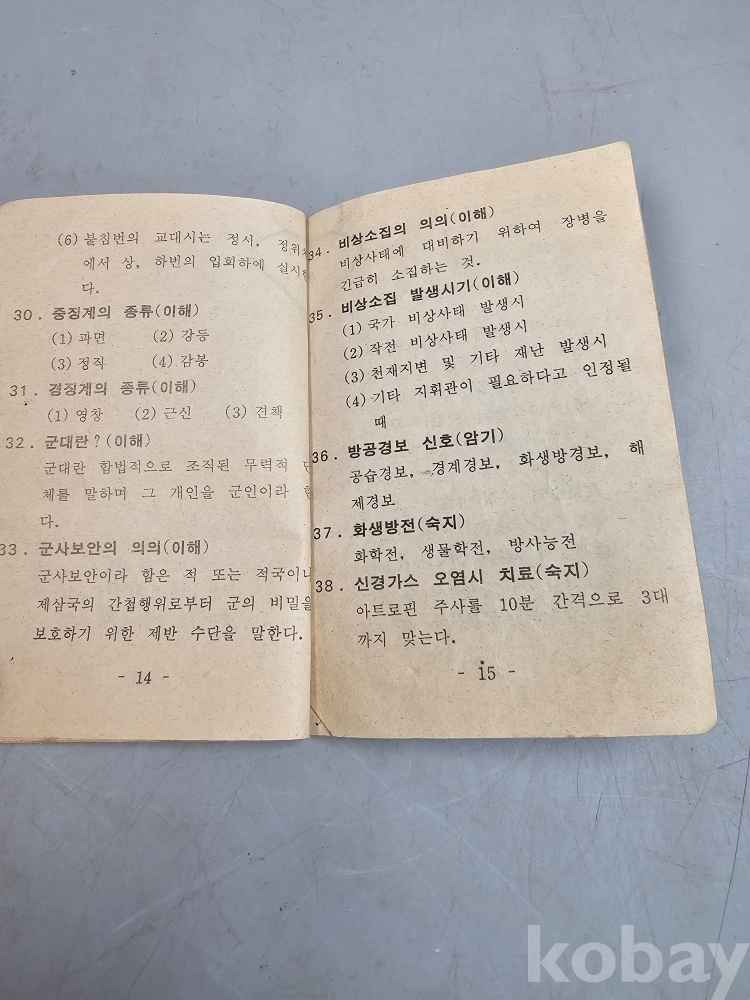 (6) 불침번의 교대시는 정시, 정위
에서 상, 하번의 입회하에 실시
다.
30. 중징계의 종류(이해)
(1) 파면 (2) 강등
(3) 정직 (4) 감봉
31. 경징계의 종류(이해)
(1) 영창 (2) 근신 (3) 견책
32. 군대란?(이해)
군대란 합법적으로 조직된 무력적 단
체를 말하며 그 개인을 군인이라 한
다.
33. 군사보안의 의의(이해)
군사보안이라 함은 적 또는 적국이나
제삼국의 간첩행위로부터 군의 비밀을
보호하기 위한 제반 수단을 말한다.
- 14 -
34. 비상소집의 의의(이해)
비상사태에 대비하기 위하여 장병을
긴급히 소집하는 것.
35. 비상소집 발생시기(이해)
(1) 국가 비상사태 발생시
(2) 작전 비상사태 발생시
(3) 천재지변 및 기타 재난 발생시
(4) 기타 지휘관이 필요하다고 인정될
때
36. 방공경보 신호(암기)
공습경보, 경계경보, 화생방경보, 해
제경보
37. 화생방전(숙지)
화학전, 생물학전, 방사능전
38. 신경가스 오염시 치료(숙지)
아트로핀 주사를 10분 간격으로 3대
까지 맞는다.
- 15 -
kobay